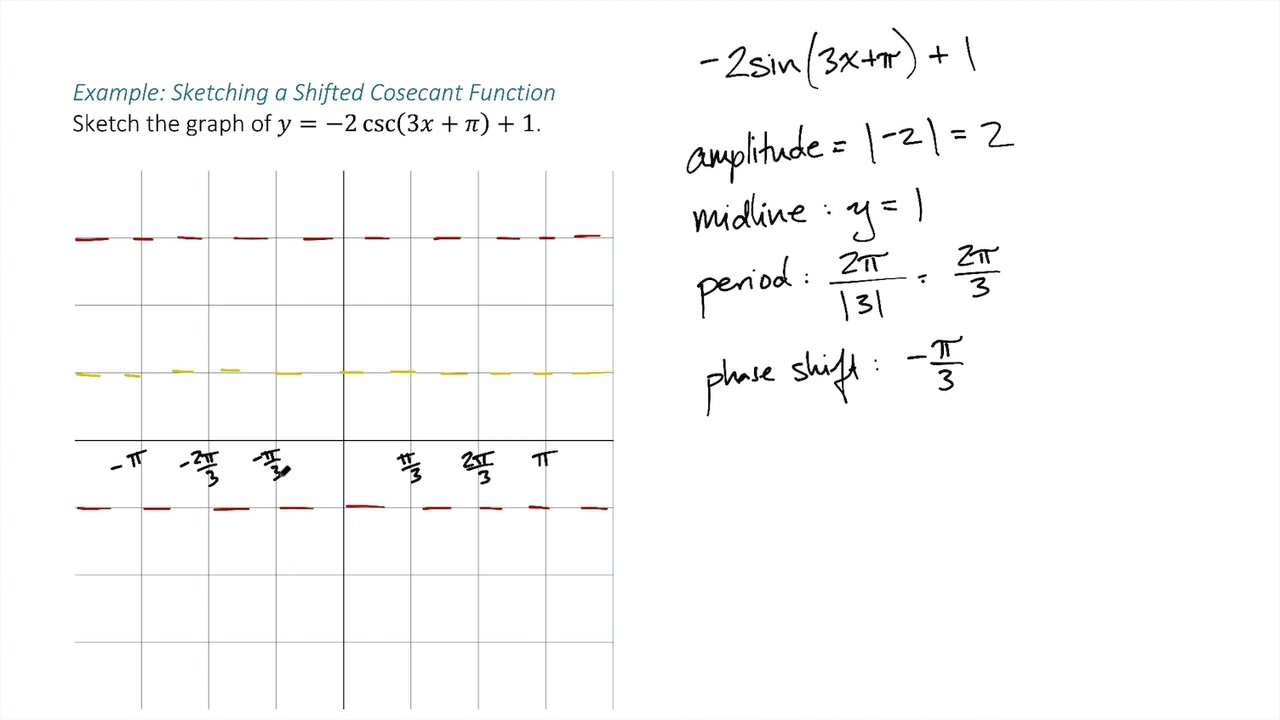 Example: Sketching a Shifted Cosecant Function
Sketch the graph of y = −2 csc(3x + π) + 1.
-2sin(3x+π) + 1
amplitude = |-2| = 2
midline : y = 1
period : 2π/|3| = 2π/3
phase shift : -π/3
-π -2π/3 -π/3 π/3 2π/3 π